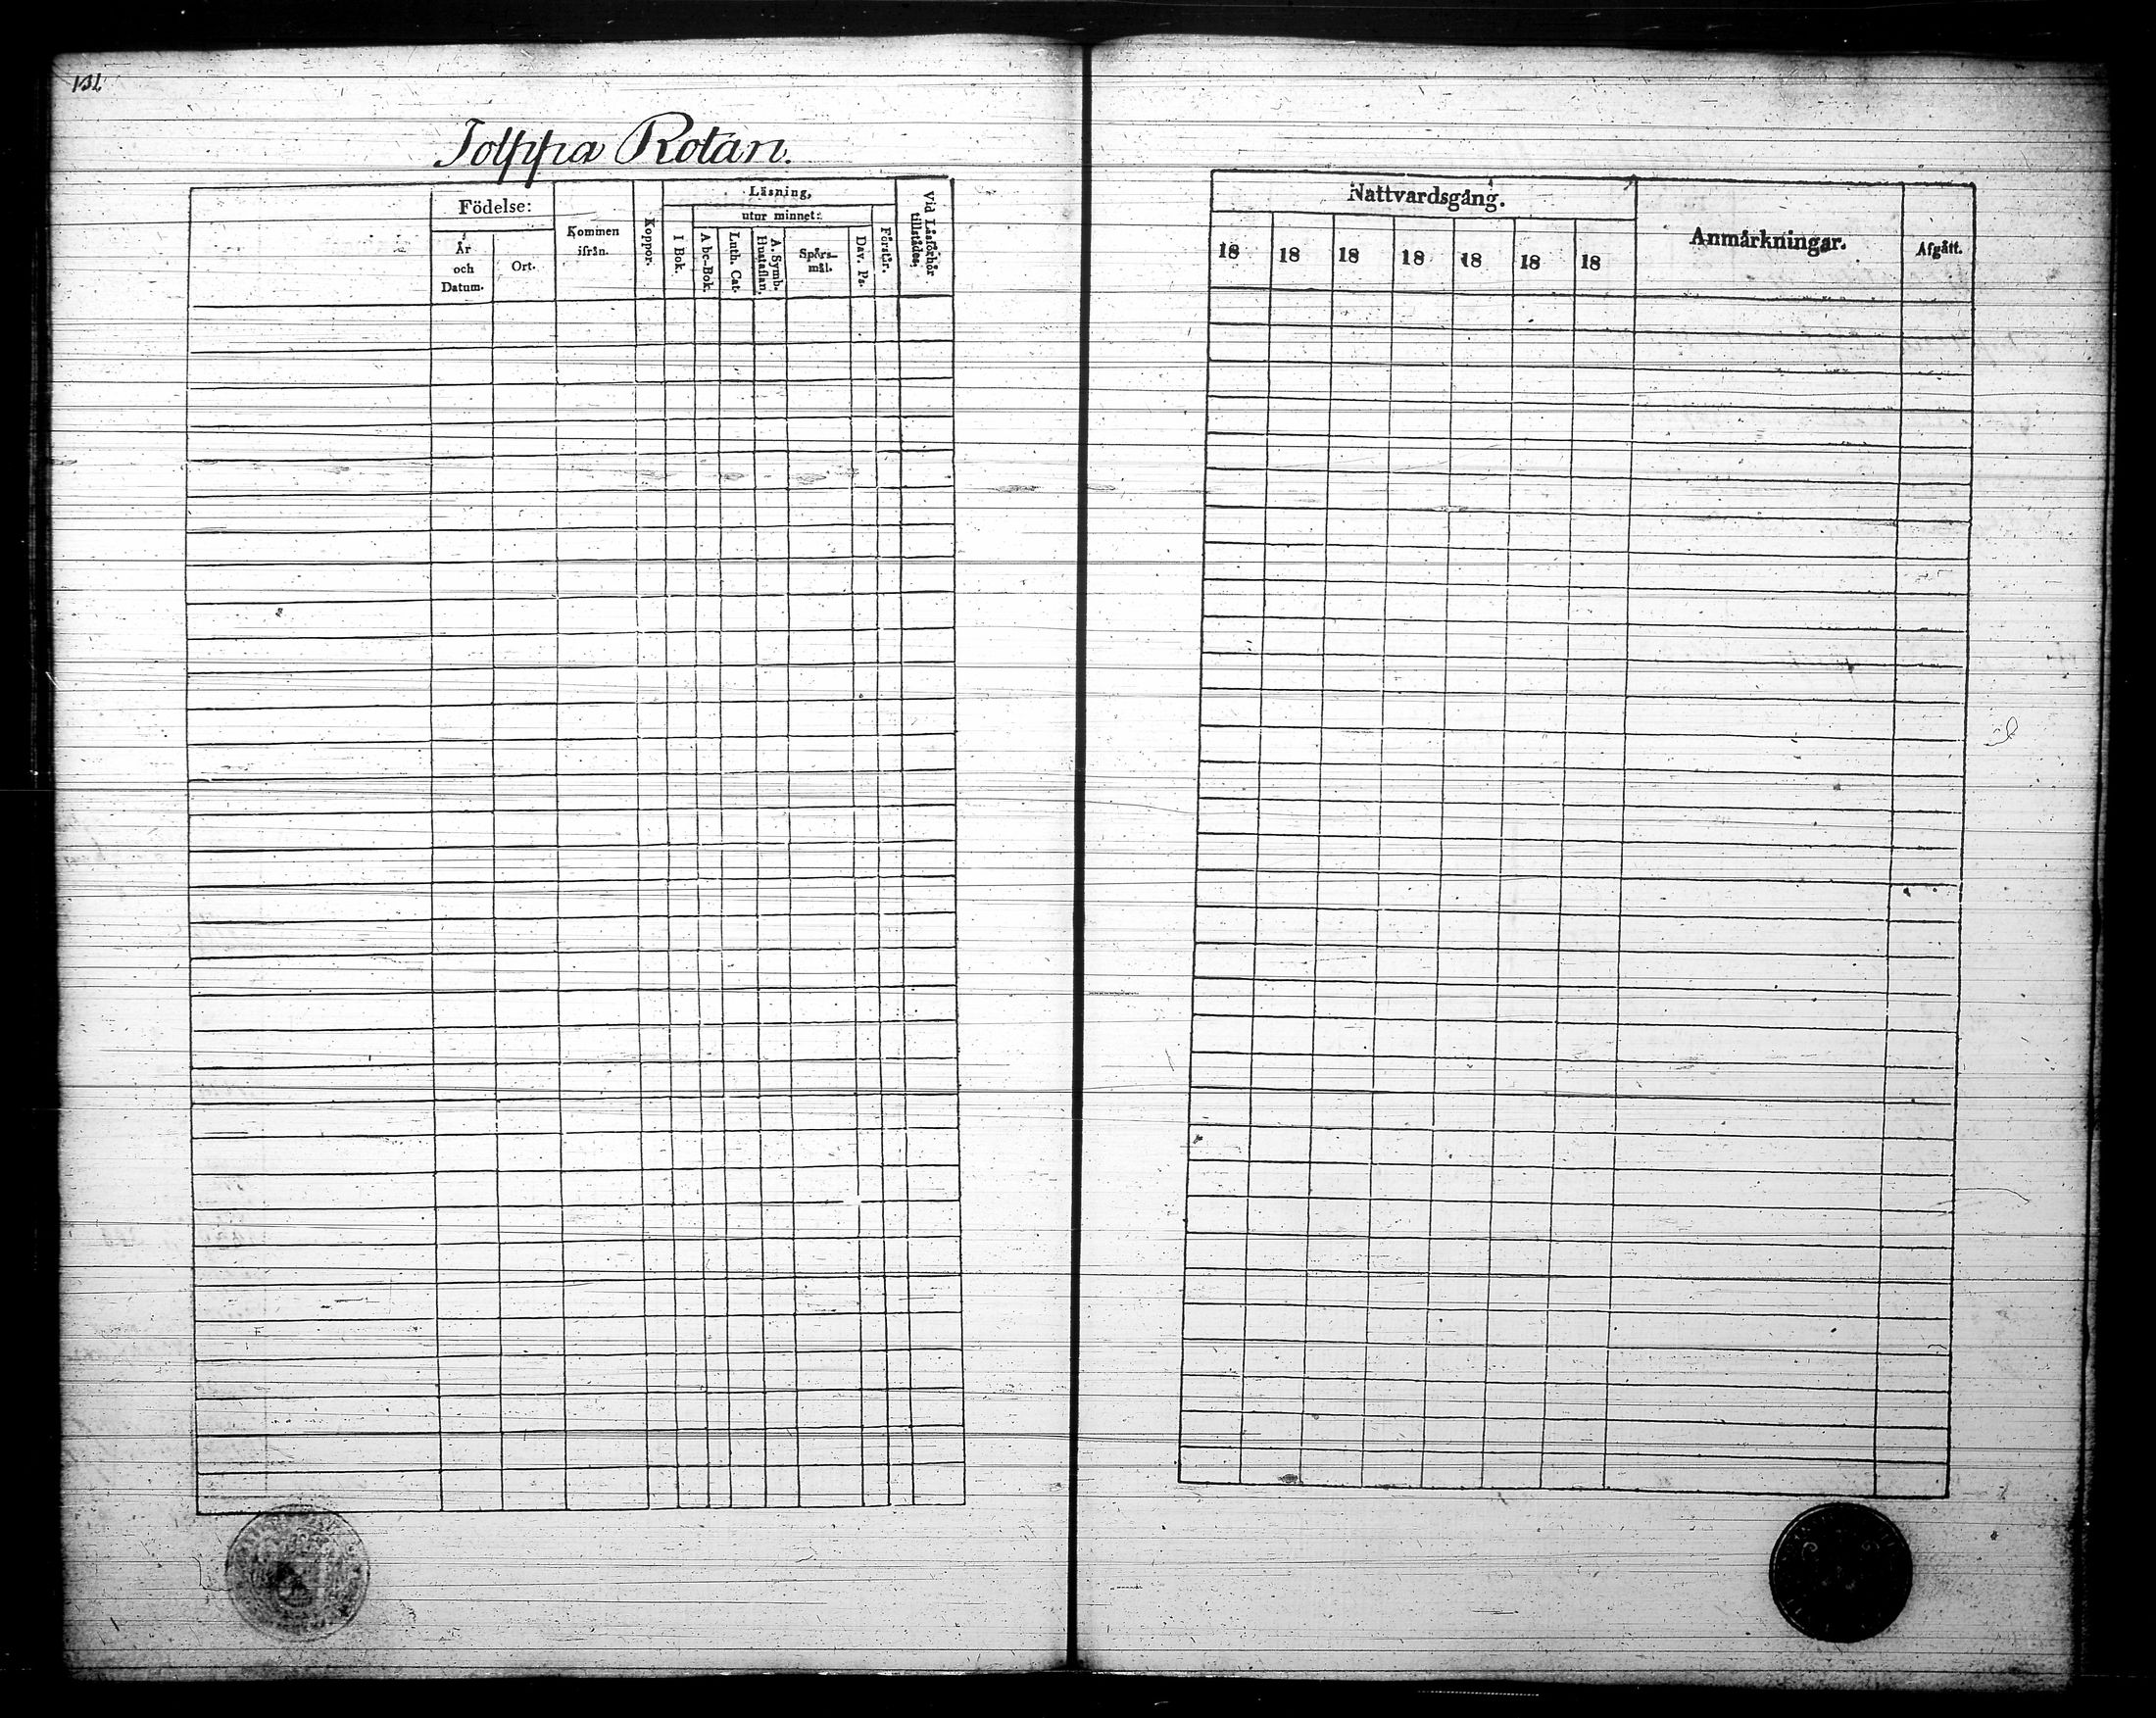 132
Tolppa Rotan.
Födelse:
År
och
Datum.
Ort.
Kommen
ifrån.
Koppor.
Läsning,
utur minnet:
I Bok.
Abc-Bok.
Luth. Cat.
A. Symb.
Hustaflan.
Spörs-
mål.
Dav. Ps.
Förstår.
Vid Läsförhör
tillstädes:
Nattvardsgång.
18 18 18 18 18 18 18
Anmärkningar.
Afgått.